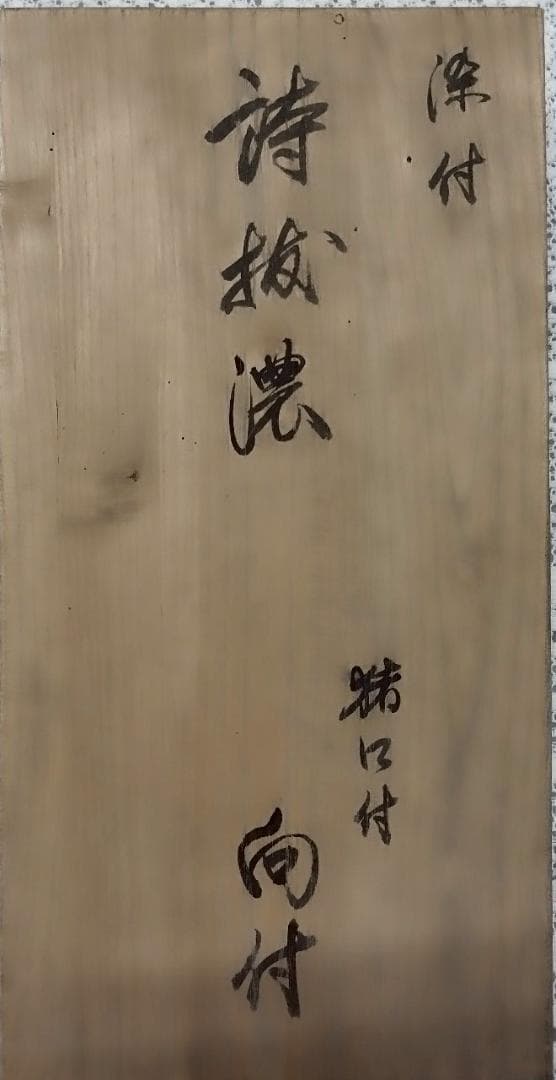 染付
詩拔濃
猪口付
向付